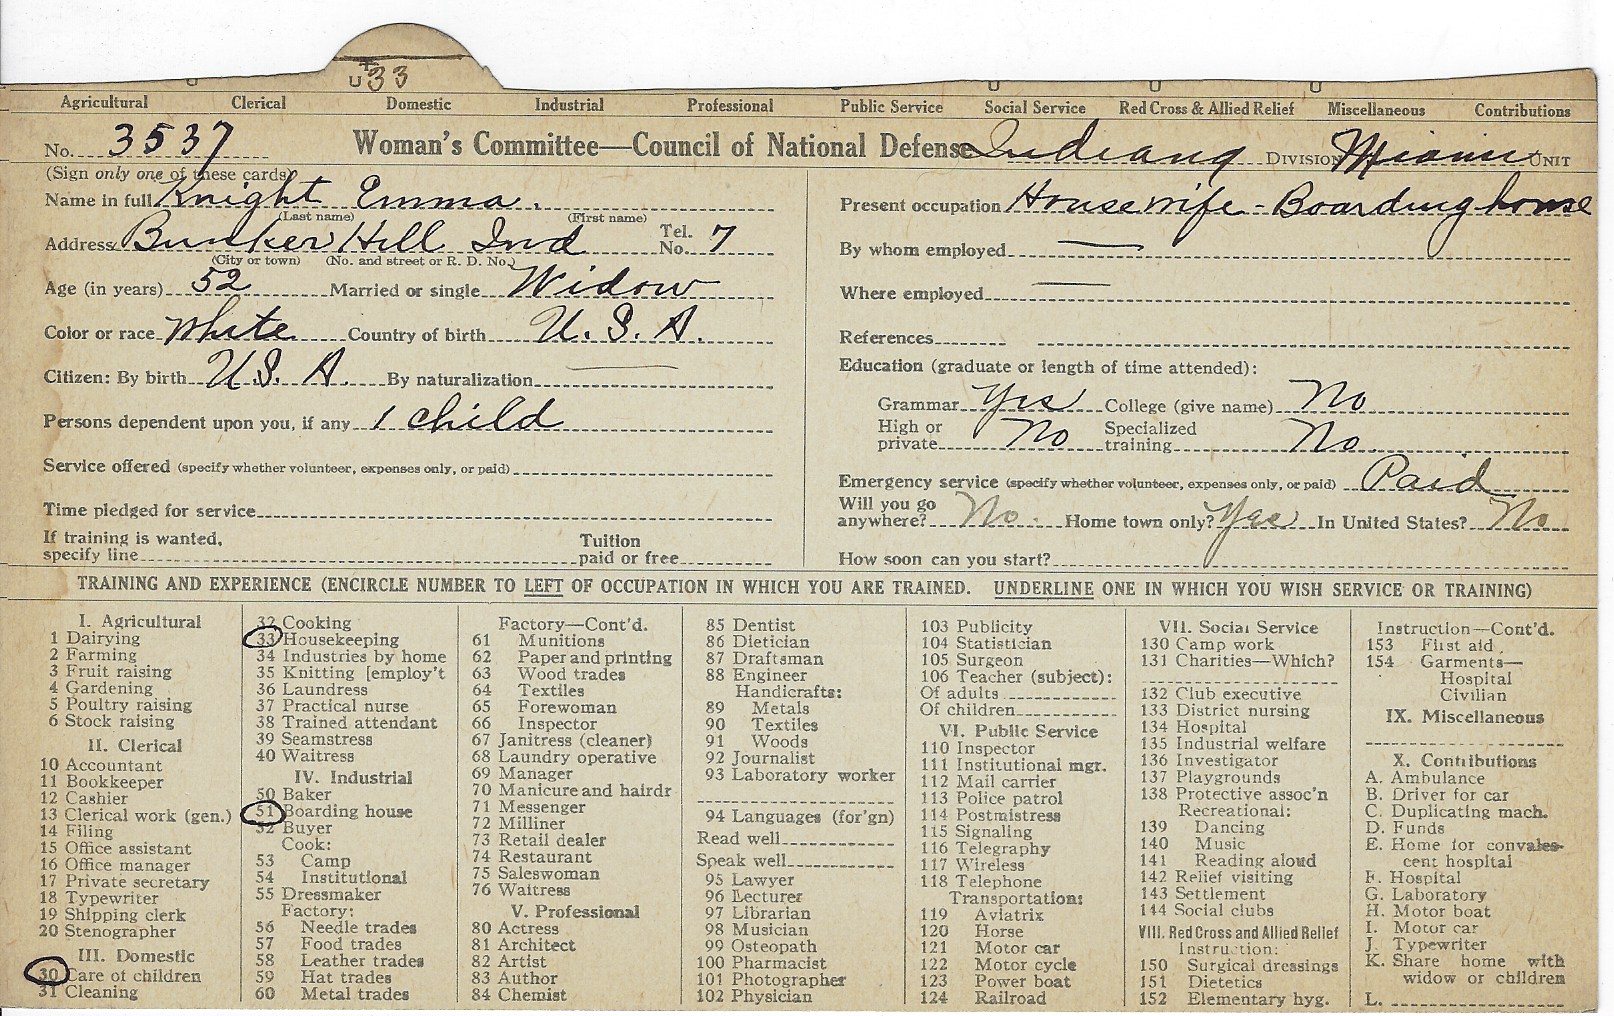 33
Agricultural Clerical Domestic Industrial Professional Public Service Social Service Red Cross & Allied Relief Miscellaneous Contributions
No. 3537 Woman's Committee—Council of National Defense Indiana DIVISION Miami UNIT
(Sign only one of these cards)
Name in full Knight Emma.
(Last name) (First name)
Address Bunker Hill Ind Tel. No. 7
(City or town) (No. and street or R. D. No.)
Age (in years) 52 Married or single Widow
Color or race White Country of birth U. S. A.
Citizen: By birth U.S. A. By naturalization
Persons dependent upon you, if any 1 child
Service offered (specify whether volunteer, expenses only, or paid)
Time pledged for service
If training is wanted, specify line Tuition paid or free
Present occupation Housewife - Boarding house
By whom employed
Where employed
References
Education (graduate or length of time attended):
Grammar Yes College (give name) No
High or private No Specialized training No
Emergency service (specify whether volunteer, expenses only, or paid) Paid
Will you go anywhere? No Home town only? Yes In United States? No
How soon can you start?
TRAINING AND EXPERIENCE (ENCIRCLE NUMBER TO LEFT OF OCCUPATION IN WHICH YOU ARE TRAINED. UNDERLINE ONE IN WHICH YOU WISH SERVICE OR TRAINING)
I. Agricultural
1 Dairying
2 Farming
3 Fruit raising
4 Gardening
5 Poultry raising
6 Stock raising
II. Clerical
10 Accountant
11 Bookkeeper
12 Cashier
13 Clerical work (gen.)
14 Filing
15 Office assistant
16 Office manager
17 Private secretary
18 Typewriter
19 Shipping clerk
20 Stenographer
III. Domestic
30 Care of children
31 Cleaning
32 Cooking
33 Housekeeping
34 Industries by home
35 Knitting [employ't
36 Laundress
37 Practical nurse
38 Trained attendant
39 Seamstress
40 Waitress
IV. Industrial
50 Baker
51 Boarding house
52 Buyer
Cook:
53 Camp
54 Institutional
55 Dressmaker
Factory:
56 Needle trades
57 Food trades
58 Leather trades
59 Hat trades
60 Metal trades
Factory—Cont'd.
61 Munitions
62 Paper and printing
63 Wood trades
64 Textiles
65 Forewoman
66 Inspector
67 Janitress (cleaner)
68 Laundry operative
69 Manager
70 Manicure and hairdr
71 Messenger
72 Milliner
73 Retail dealer
74 Restaurant
75 Saleswoman
76 Waitress
V. Professional
80 Actress
81 Architect
82 Artist
83 Author
84 Chemist
85 Dentist
86 Dietician
87 Draftsman
88 Engineer
Handicrafts:
89 Metals
90 Textiles
91 Woods
92 Journalist
93 Laboratory worker
94 Languages (for'gn)
Read well
Speak well
95 Lawyer
96 Lecturer
97 Librarian
98 Musician
99 Osteopath
100 Pharmacist
101 Photographer
102 Physician
103 Publicity
104 Statistician
105 Surgeon
106 Teacher (subject):
Of adults
Of children
VI. Public Service
110 Inspector
111 Institutional mgr.
112 Mail carrier
113 Police patrol
114 Postmistress
115 Signaling
116 Telegraphy
117 Wireless
118 Telephone
Transportation:
119 Aviatrix
120 Horse
121 Motor car
122 Motor cycle
123 Power boat
124 Railroad
VII. Social Service
130 Camp work
131 Charities—Which?
132 Club executive
133 District nursing
134 Hospital
135 Industrial welfare
136 Investigator
137 Playgrounds
138 Protective assoc'n
Recreational:
139 Dancing
140 Music
141 Reading aloud
142 Relief visiting
143 Settlement
144 Social clubs
VIII. Red Cross and Allied Relief
Instruction:
150 Surgical dressings
151 Dietetics
152 Elementary hyg.
Instruction—Cont'd.
153 First aid
154 Garments—
Hospital
Civilian
IX. Miscellaneous
X. Contributions
A. Ambulance
B. Driver for car
C. Duplicating mach.
D. Funds
E. Home for convales-
cent hospital
F. Hospital
G. Laboratory
H. Motor boat
I. Motor car
J. Typewriter
K. Share home with
widow or children
L.